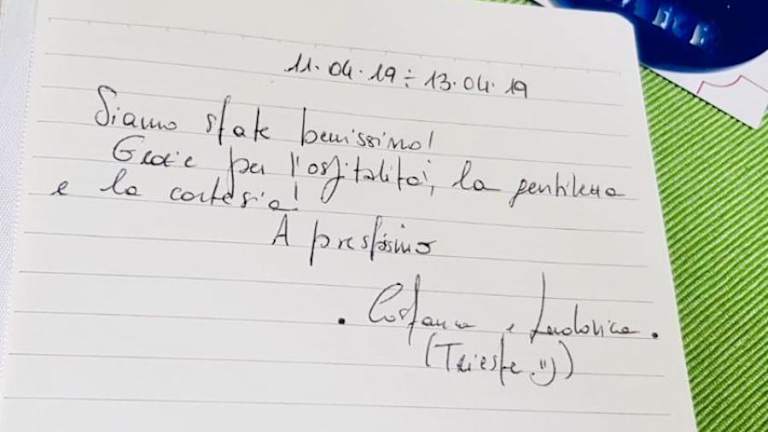 11.04.19÷13.04.19
Siamo state benissimo!
Grazie per l'ospitalità, la gentilezza
e la cortesia!
A prestissimo
. Costanza e Ludovica.
(Trieste :))